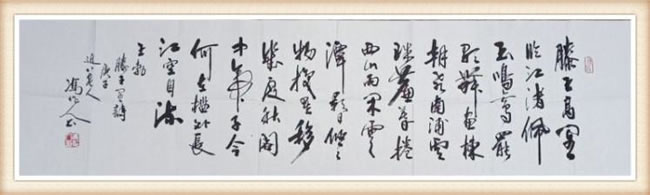 滕王高阁
临江渚佩
玉鸣鸾罢
歌舞画栋
朝飞南浦雲
珠簾暮捲
西山雨闲雲
潭影日悠々
物换星移
幾度秋阁
中帝子今
何在槛外長
江空自流
王勃
滕王阁诗
庚子